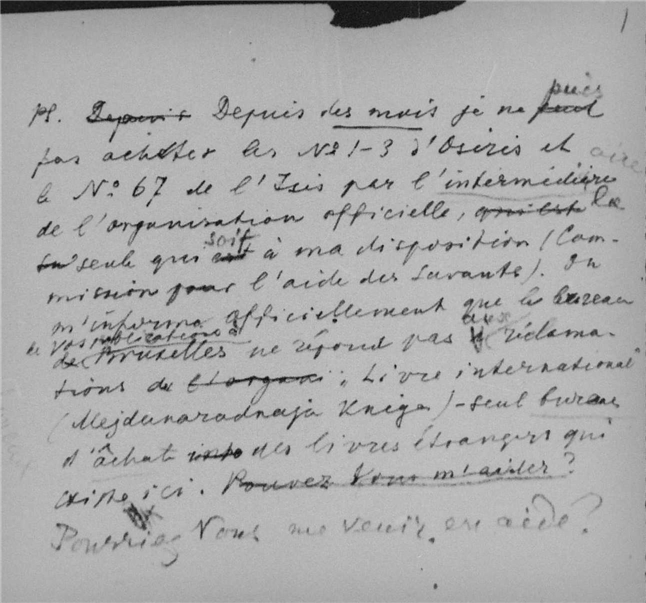 1
puis
PS. Depuis Depuis des mois je ne peut
pas acheter les Nº 1-3 d'Osiris et
aire
le Nº 67 de l'Isis par l'intermédiere
de l'organisation officielle, qui est la
seule qui est soit à ma disposition (Com-
mission pour l'aide des Savants). On
m'informa officiellement que le bureau
de vos publications à aux
de Bruxelles ne répond pas réclama-
tions du "Livre international"
(Mejdunarodnaja Kniga) - seul bureau
d'âchats des livres étrangers qui
existe ici. Pouvez Vous m'aider?
Pourriez Vous me venir en aide?